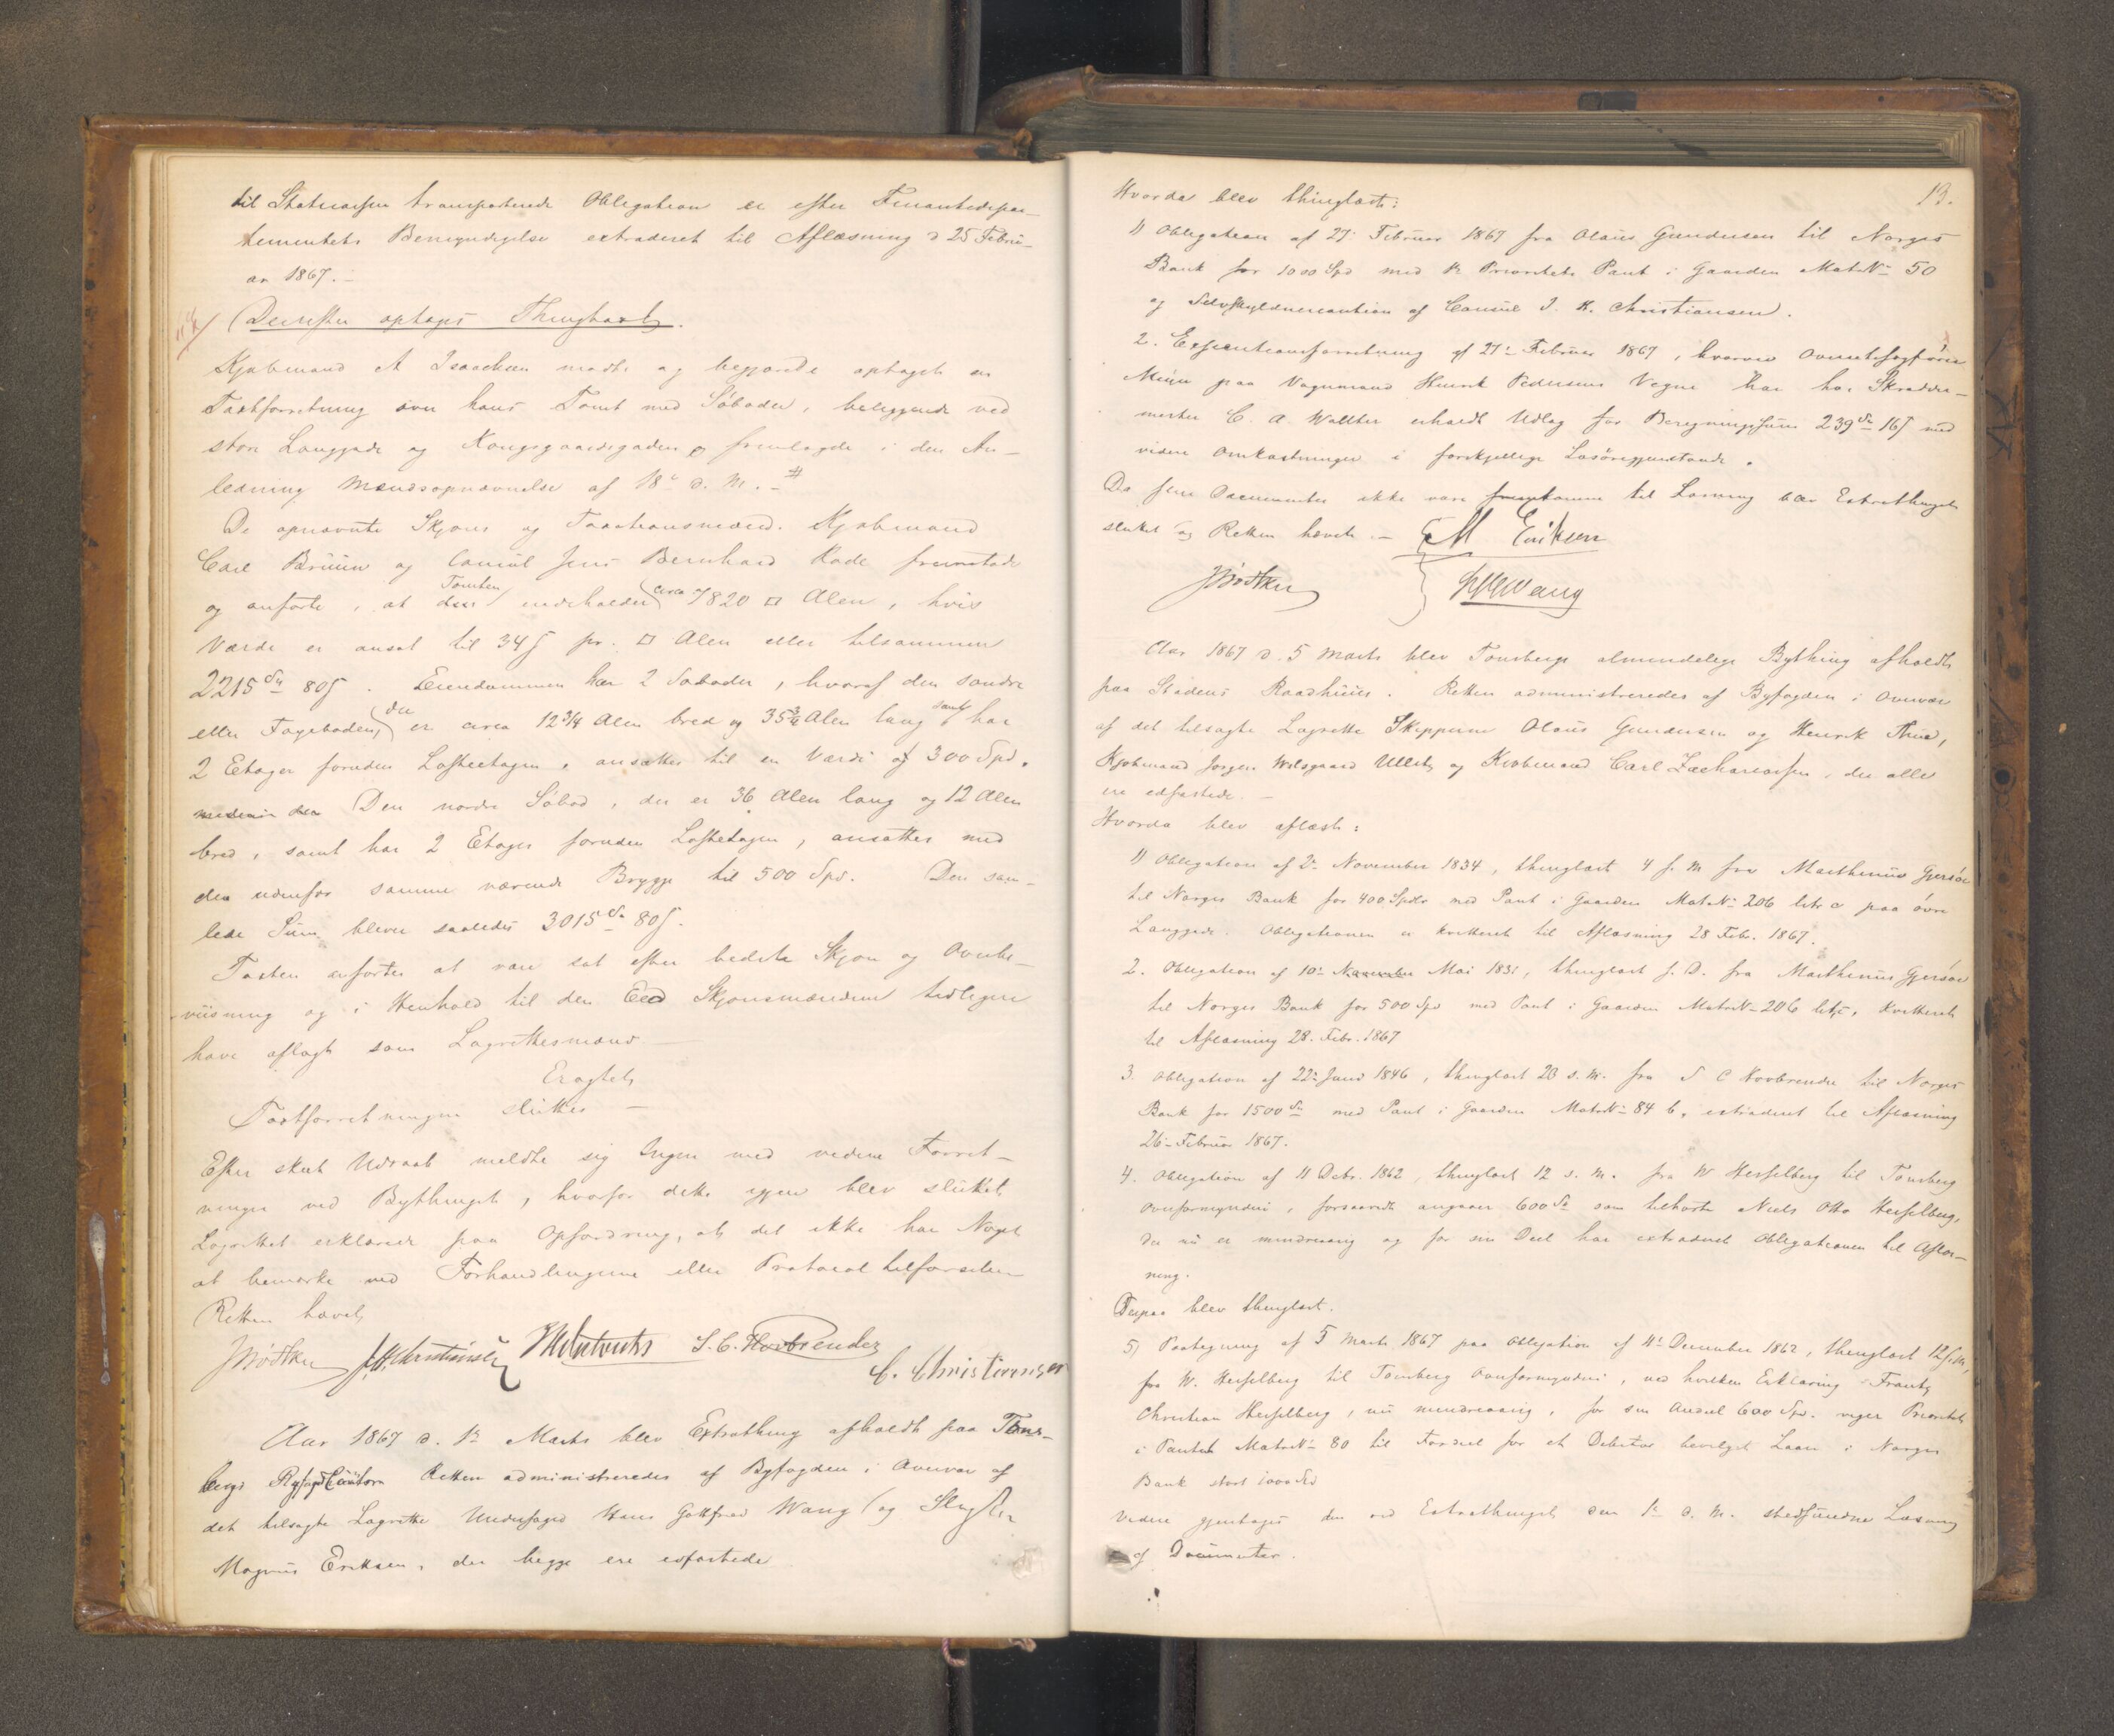 til Statscassen transporterede Obligation er efter Finantsdepar-
tementets Bemyndigelse extraderet til Aflæsning d 25 Febru-
ar 1867.-
Derefter optoges Thingtaxt.
Kjøbmand A Isaachsen mødte og begjærede optaget en
Taxtforretning over hans Tomt med Søboder, beliggende ved
store Langgade og Kongsgaardsgaden og fremlagde i den An-
ledning Mændsopnævnelse af 18de d. M. - #
De opnævnte Skjøns og Taxationsmænd. Kjøbmand
Carl Bruun og Consul Jens Bernhard Rode fremstode
og anførte, at Tomten indeholder circa 7820 □ Alen, hvis
Værdi er ansat til 34 s pr. □ Alen eller tilsammen
2215 Sp 80 s. Eiendommen har 2 Søboder, hvoraf den søndre
eller Tageboden, der er circa 12 3/4 Alen bred og 35 3/4 Alen lang samt har
2 Etager foruden Loftsetagen, ansættes til en Værdi af 300 Spd.
Den nordre Søbod, der er 36 Alen lang og 12 Alen
bred, samt har 2 Etager foruden Loftsetagen, ansættes med
den udenfor samme værende Brygge til 500 Spd. Den sam-
lede Sum bliver saaledes 3015 Sp 80 s.
Taxten anførtes at være sat efter bedste Skjøn og Overbe-
viisning og i Henhold til den Eed Skjønsmændene tidligere
have aflagt som Lagrettesmænd
Eragtet
Taxtforretningen sluttes -
Efter skeet Udraab meldte sig Ingen med videre Forret-
ninger ved Bythinget, hvorfor dette igjen blev sluttet.
Lagrettet erklærede paa Opfordring, at det ikke har Noget
at bemærke ved Forhandlingerne eller Protocoltilførselen
Retten hævet
JBødtker JKChristiansen S. C. Hovbrender
C. Christiansen
Aar 1867 d. 1ste Marts blev Extrathing afholdt paa Tøns-
bergs Byfogdcontor Retten administreredes af Byfogden i Overvær af
det tilsagte Lagrette Underfoged Hans Gottfried Wang og
Magnus Eriksen, der begge ere edfæstede
13.
Hvorda blev thinglæst:
1) Obligation af 27. Februar 1867 fra Olaus Gundersen til Norges
Bank for 1000 Spd med 1ste Prioritets Pant i Gaarden Mat№ 50
og Selvskyldnercaution af Consul J. K. Christiansen.
2. Executionsforretning af 27de Februar 1867, hvorved Overretssagfører
paa Vognmand Henrik Pedersens Vegne har hos Skrædder-
mester C. A. Wallter erholdt Udlæg for Beregningssum 239 Sp 16 s med
videre Omkostninger i forskjellige Løsøregjenstande.
Da flere Documenter ikke vare fremkomne til Læsning blev Extrathinget
sluttet og Retten hævet. - M Eriksen
JBødtker HGWang
Aar 1867 d. 5 Marts blev Tønsbergs almindelige Bything afholdt
paa Stadens Raadhuus. Retten administreredes af Byfogden i Overvær
af det tilsagte Lagrette Skipperne Olaus Gundersen og Henrik Thue,
Kjøbmand Jørgen Wilsgaard Ulleb og Kjøbmand Carl Zachariassen, der alle
ere edfæstede. -
Hvorda blev aflæst:
1) Obligation af 2den November 1834, thinglæst 4 s. M fra Marthinius Gjersøe
til Norges Bank for 400 Spdr med Pant i Gaarden Mat№ 206 litr c paa øvre
Langgade. Obligationen er kvitteret til Aflæsning 28 Febr. 1867.
2. Obligation af 10de Mai 1831, thinglæst s. D. fra Marthinius Gjersøe
til Norges Bank for 500 Spd med Pant i Gaarden Matr№ 206 litr c, kvitteret
til Aflæsning 28. Febr. 1867
3. Obligation af 22de Juni 1846, thinglæst 23 s. M. fra S C Hovbrender til Norges
Bank for 1500 Sp med Pant i Gaarden Matr№ 84 b, extraderet til Aflæsning
26de Februar 1867.
4. Obligation af 11 Decbr. 1862, thinglæst 12 s. M. fra W Hesselberg til Tønsberg
Overformynderi, forsaavidt angaaer 600 Sp som tilhørte Niels Otto Hesselberg,
der nu er myndig og for sin Deel har extraderet Obligationen til Aflæs-
ning.
Derpaa blev thinglæst.
5) Paategning af 5 Marts 1867 paa Obligation af 11te December 1862, thinglæst 12 s. M.,
fra W. Hesselberg til Tønsberg Overformynderi, ved hvilken Erklæring Frantz
Christian Hesselberg, nu mindreaarig, for sin Andeel 600 Spd. viger Prioritet
i Pantet Matr№ 80 til Fordeel for et Debitor bevilget Laan i Norges
Bank stort 1000 Spd
Videre gjentoges den ved Extrathinget den 1ste d. M. stedfundne Læsning
af Documenter.